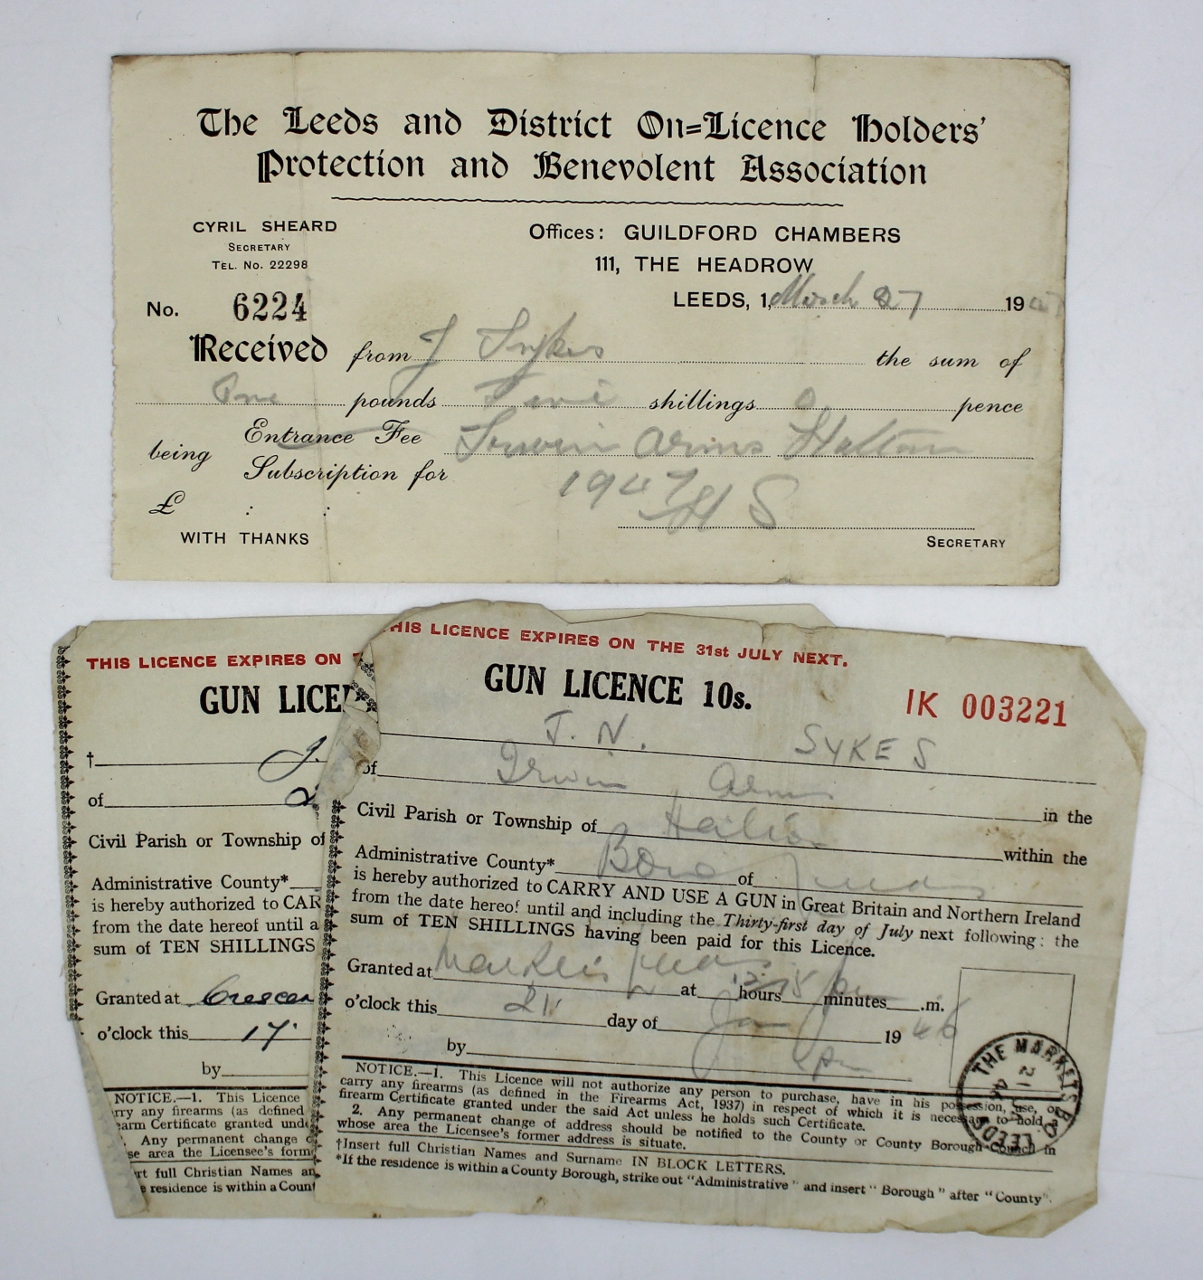 The Leeds and District On=Licence Holders'
Protection and Benevolent Association
CYRIL SHEARD
SECRETARY
TEL. No. 22298
Offices: GUILDFORD CHAMBERS
111, THE HEADROW
LEEDS, 1, March 27 1947
No. 6224
Received from J Sykes the sum of
One pounds shillings 0 pence
being Entrance Fee
Subscription for Irwin Arms Halton
1947
£ : :
HS
WITH THANKS
SECRETARY
THIS LICENCE EXPIRES ON
GUN LICE
† J.
of
Civil Parish or Township of
Administrative County*
is hereby authorized to CAR
from the date hereof until a
sum of TEN SHILLINGS
Granted at Crescen
o'clock this 17
by
NOTICE.—1. This Licence
rry any firearms (as defined
arm Certificate granted unde
. Any permanent change o
se area the Licensee's forme
rt full Christian Names an
residence is within a Count
HIS LICENCE EXPIRES ON THE 31st JULY NEXT.
GUN LICENCE 10s.
IK 003221
J. N. SYKES
of Irwin Arms in the
Civil Parish or Township of Halton within the
Administrative County* Boro of Leeds
is hereby authorized to CARRY AND USE A GUN in Great Britain and Northern Ireland
from the date hereof until and including the Thirty-first day of July next following: the
sum of TEN SHILLINGS having been paid for this Licence.
Granted at Markets Leeds at 12 hours 15 minutes .m.
o'clock this 21 day of Jany 1946
by
THE MARKETS B.O.
LEEDS
NOTICE.—1. This Licence will not authorize any person to purchase, have in his possession, use, or
carry any firearms (as defined in the Firearms Act, 1937) in respect of which it is necessary to hold a
firearm Certificate granted under the said Act unless he holds such Certificate.
2. Any permanent change of address should be notified to the County or County Borough Council in
whose area the Licensee's former address is situate.
†Insert full Christian Names and Surname IN BLOCK LETTERS.
*If the residence is within a County Borough, strike out "Administrative" and insert "Borough" after "County".